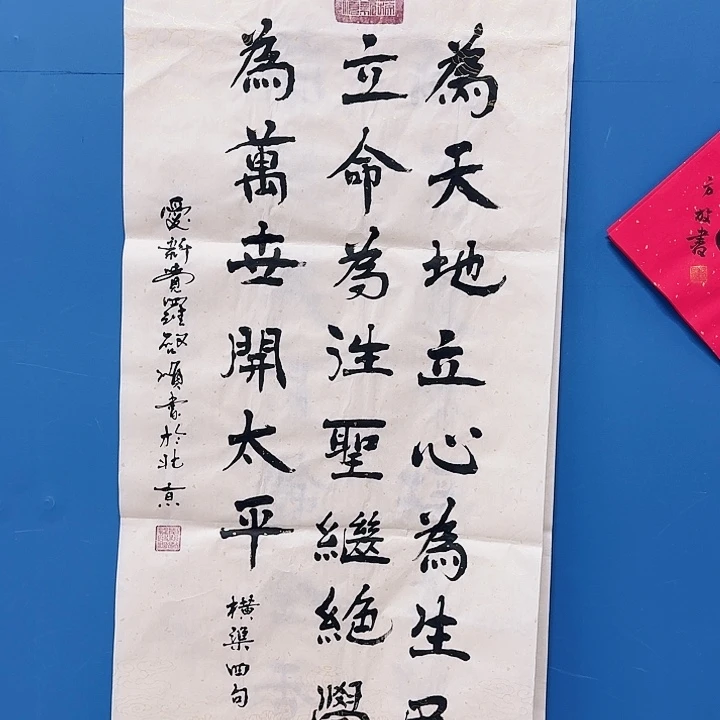 為天地立心為生民
立命為往聖繼絶學
為萬世開太平
橫渠四句
愛新覺羅啟順書於北京